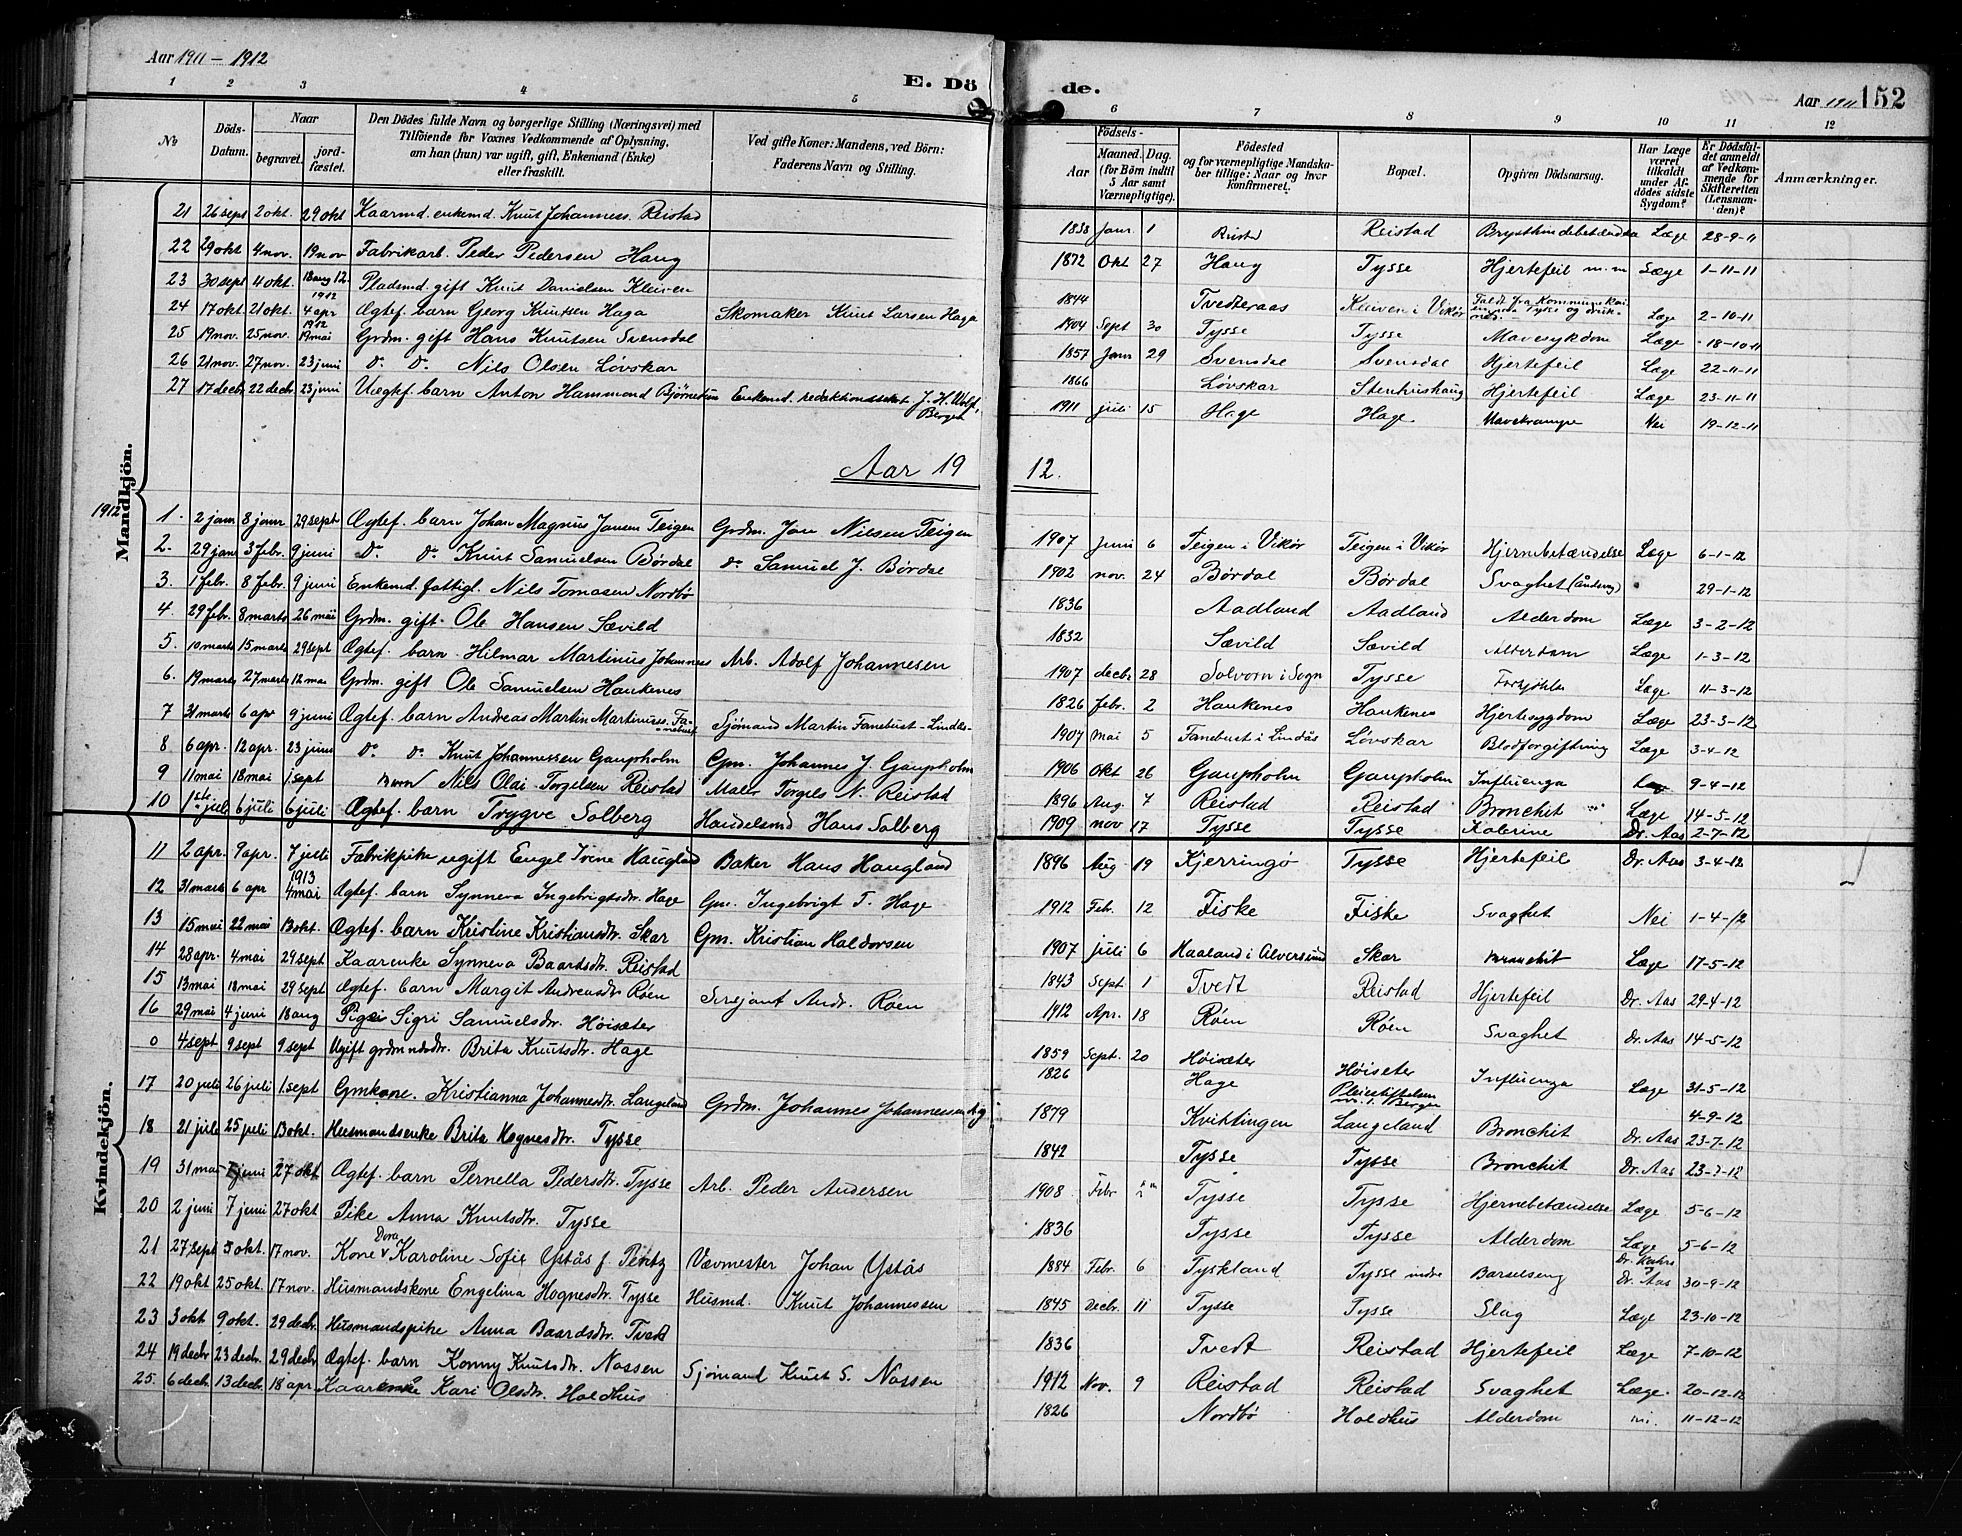 Aar 1911 - 1912
E. Döde.
Aar 1911 152
1 2 3 4 5 6 7 8 9 10 11 12
No
Döds-Datum.
Naar begravet. jordfæstet.
Den Dödes fulde Navn og borgerlige Stilling (Næringsvei) med Tilföiende for Voxnes Vedkommende af Oplysning, om han (hun) var ugift, gift, Enkemand (Enke) eller fraskilt.
Ved gifte Koner: Mandens, ved Börn: Faderens Navn og Stilling.
Födsels- Aar Maaned. Dag. (for Börn indtil 5 Aar samt Værnepligtige).
Födested og for værnepligtige Mandskaber tillige: Naar og hvor konfirmeret.
Bopæl.
Opgiven Dödsaarsag.
Har Læge været tilkaldt under Afdödes sidste Sygdom?
Er Dödsfaldet anmeldt af Vedkommende for Skifteretten (Lensmanden)?
Anmærkninger.
Mandkjön.
21 26 sept 2 okt. 29 okt Kaarmd. enkemd. Knut Johanness. Reistad 1838 Janr 1 Reistad Læge 28-9-11
22 29 okt 4 nov. 19 nov Fabrikarb. Peder Pedersen Haug 1872 Okt 27 Haug Tysse Hjertefeil m.m Læge 1-11-11
23 30 sept 4 okt. 18 aug 12 Pladsmd. gift Knut Danielsen Kleiven 1844 Tvedteraas Kleiven i Vikør Læge 2-10-11
24 17 okt 21 okt. 1912 4 apr Ægtef. barn Georg Knutsen Haga Skomaker Knut Larsen Haga 1904 Sept 30 Tysse Tysse Mavesykdom Læge 18-10-11
25 19 nov. 25 nov. 1912 19 mai Grdm. gift Hans Knutsen Svensdal 1857 Janr 29 Svensdal Svensdal Hjertefeil Læge 22-11-11
26 21 nov. 27 nov. 23 juni Do. Do. Nils Olsen Lövskar 1866 Lövskar Stenhushaug Hjertefeil Læge 23-11-11
27 17 decbr 22 decbr. 23 juni Uægtf. barn Anton Hammond Bjørnetun Enkemd. redaktionssekr J. H. Wolf, Bergen 1911 juli 15 Hage Hage Mavekrampe Nei 19-12-11
Aar 1912.
1912
1. 2 janr 8 janr 29 sept Ægtef. barn Johan Magnus Jansen Teigen Grdm. Jon Nilsen Teigen 1907 Juni 6 Teigen i Vikør Teigen i Vikør Hjernebetændelse Læge 6-1-12
2. 29 jan 3 febr. 9 juni Do. Do. Knut Samuelsen Børdal Do Samuel J. Børdal 1902 nov. 24 Børdal Børdal Svaghet 29-1-12
3. 1 febr. 8 febr. 9 juni Enkemd. fattigl. Nils Tomasen Nordbø 1836 Aadland Aadland Alderdom Læge 3-2-12
4. 29 febr. 8 marts 26 mai Grdm. gift Ole Hansen Sævild 1832 Sævild Sævild Alderdom Læge 1-3-12
5. 10 marts 15 marts 29 sept Ægtef. barn Hilmar Martinus Johannes Arb. Adolf Johannesen 1907 decbr 28 Solvorn i Sogn Tysse Læge 11-3-12
6. 19 marts 27 marts 12 mai Grdm. gift Ole Samuelsen Haukenes 1826 febr. 2 Haukenes Haukenes Hjertesygdom Læge 23-3-12
7 31 marts 6 apr 9 juni Ægtef. barn Andreas Martin Martinuss. Fanebust Sjømand Martin Fanebust - Lindås 1907 mai 5 Fanebust i Lindås Lövskar Blodforgiftning Læge 3-4-12
8 6 apr. 12 apr. 23 juni Do. Do. Knut Johannessen Gaupholm Gm. Johannes J. Gaupholm 1906 Okt 26 Gaupholm Gaupholm Influenza Læge 9-4-12
9 11 mai 18 mai 1. sept Barn Nils Olai Torgilsen Reistad Maler Torgils N. Reistad 1896 Aug. 7 Reistad Reistad Bronchit Læge 14-5-12
10 1ste juli 6 juli 6 juli Ægtef. barn Trygve Solberg Handelsmd Hans Solberg 1909 nov 17 Tysse Tysse Kolerine Dr. Aas 2-7-12
Kvindekjön.
11 2 apr. 9 apr. 7 juli Fabrikpike ugift Engel Irine Haugland Baker Hans Haugland 1896 Aug 19 Kjerringø Tysse Hjertefeil Dr. Aas 3-4-12
12 31 marts 6 apr 1913 4 mai Ægtef. barn Synneva Ingebrigtsdtr. Hage Gm. Ingebrigt T. Hage 1912 Feb. 12 Fiske Fiske Svaghet Nei 1-4-12
13 15 mai 22 mai 13 okt. Ægtef. barn Kristine Kristiansdtr. Skar Gm. Kristian Haldorsen 1907 juli 6 Haaland i Alversund Skar Bronchit Læge 17-5-12
14 28 apr. 4 mai 29 sept Kaarenke Synneva Baardsdtr. Reistad 1843 Sept 1 Tvedt Reistad Hjertefeil Dr. Aas 29-4-12
15 13 mai 18 mai 29 sept Ægtef. barn Margit Andreasdtr Røen Andr. Røen 1912 Apr. 18 Røen Røen Svaghet Dr. Aas 14-5-12
16 29 mai 4 juni 18 aug Sigri Samuelsdtr. Höisæter 1859 Sept. 20 Höisæter Höiseter Influenza Læge 31-5-12
0 4 sept 9 sept 9 sept Ugift Brita Knutsdtr. Hage 1826 Hage Pleiestiftelsen i Bergen 4-9-12
17 20 juli 26 juli 1. sept Gmkone. Kristianna Johannesdtr. Langeland Grdm. Johannes Johannessen 1879 Kvittingen Langeland Bronchit Dr. Aas 23-7-12
18 21 juli 25 juli 13 okt. Husmandsenke Brita Hognesdtr. Tysse 1842 Tysse Tysse Bronchit Dr. Aas 23-7-12
19 31 mai 7 juni 27 okt Ægtef. barn Pernella Pedersdtr. Tysse Arb. Peder Andersen 1908 Febr Tysse Tysse Hjernebetændelse Læge 5-6-12
20 2 juni 7 juni 27 okt Pike Anna Knutsdtr. Tysse 1836 Tysse Tysse Alderdom Læge 5-6-12
21 27 sept 5 okt. 17 nov. Kone Dora Karoline Sofie Ystås f. Pentz Vævmester Johan Ystås 1884 Febr. 6 Tyskland Tysse indre Barselseng Dr. Aas 30-9-12
22 19 okt 25 okt. 17 nov. Husmandskone Engelina Hognesdtr. Tysse Husmd. Knut Johannessen 1845 Decbr. 11 Tysse Tysse Slag Læge 23-10-12
23 3 okt 9 okt. 29 decbr. Husmandspike Anna Baardsdtr. Tvedt 1836 Tvedt Reistad Hjertefeil Læge 7-10-12
24 19 decbr 23 decbr. 29 decbr Ægtef. barn Konny Knutsdtr. Nossen Sjømand Knut S. Nossen 1912 Nov. 9 Reistad Reistad Svaghet Læge. 20-12-12
25. 6 decbr. 13 decbr. 18 apr. Kaarenke Kari Olsdtr. Holdhus 1826 Nordbø Holdhus Alderdom 11-12-12